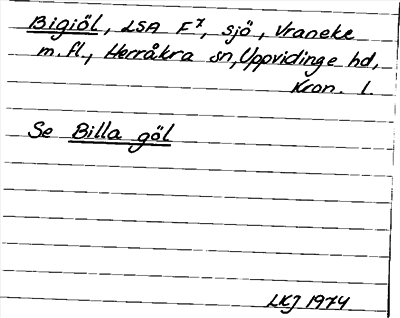 Bigiöl, LSA F⁷, sjö, Vraneke
m.fl., Herråkra sn, Uppvidinge hd,
Kron. l.
Se Billa göl
LKJ 1974